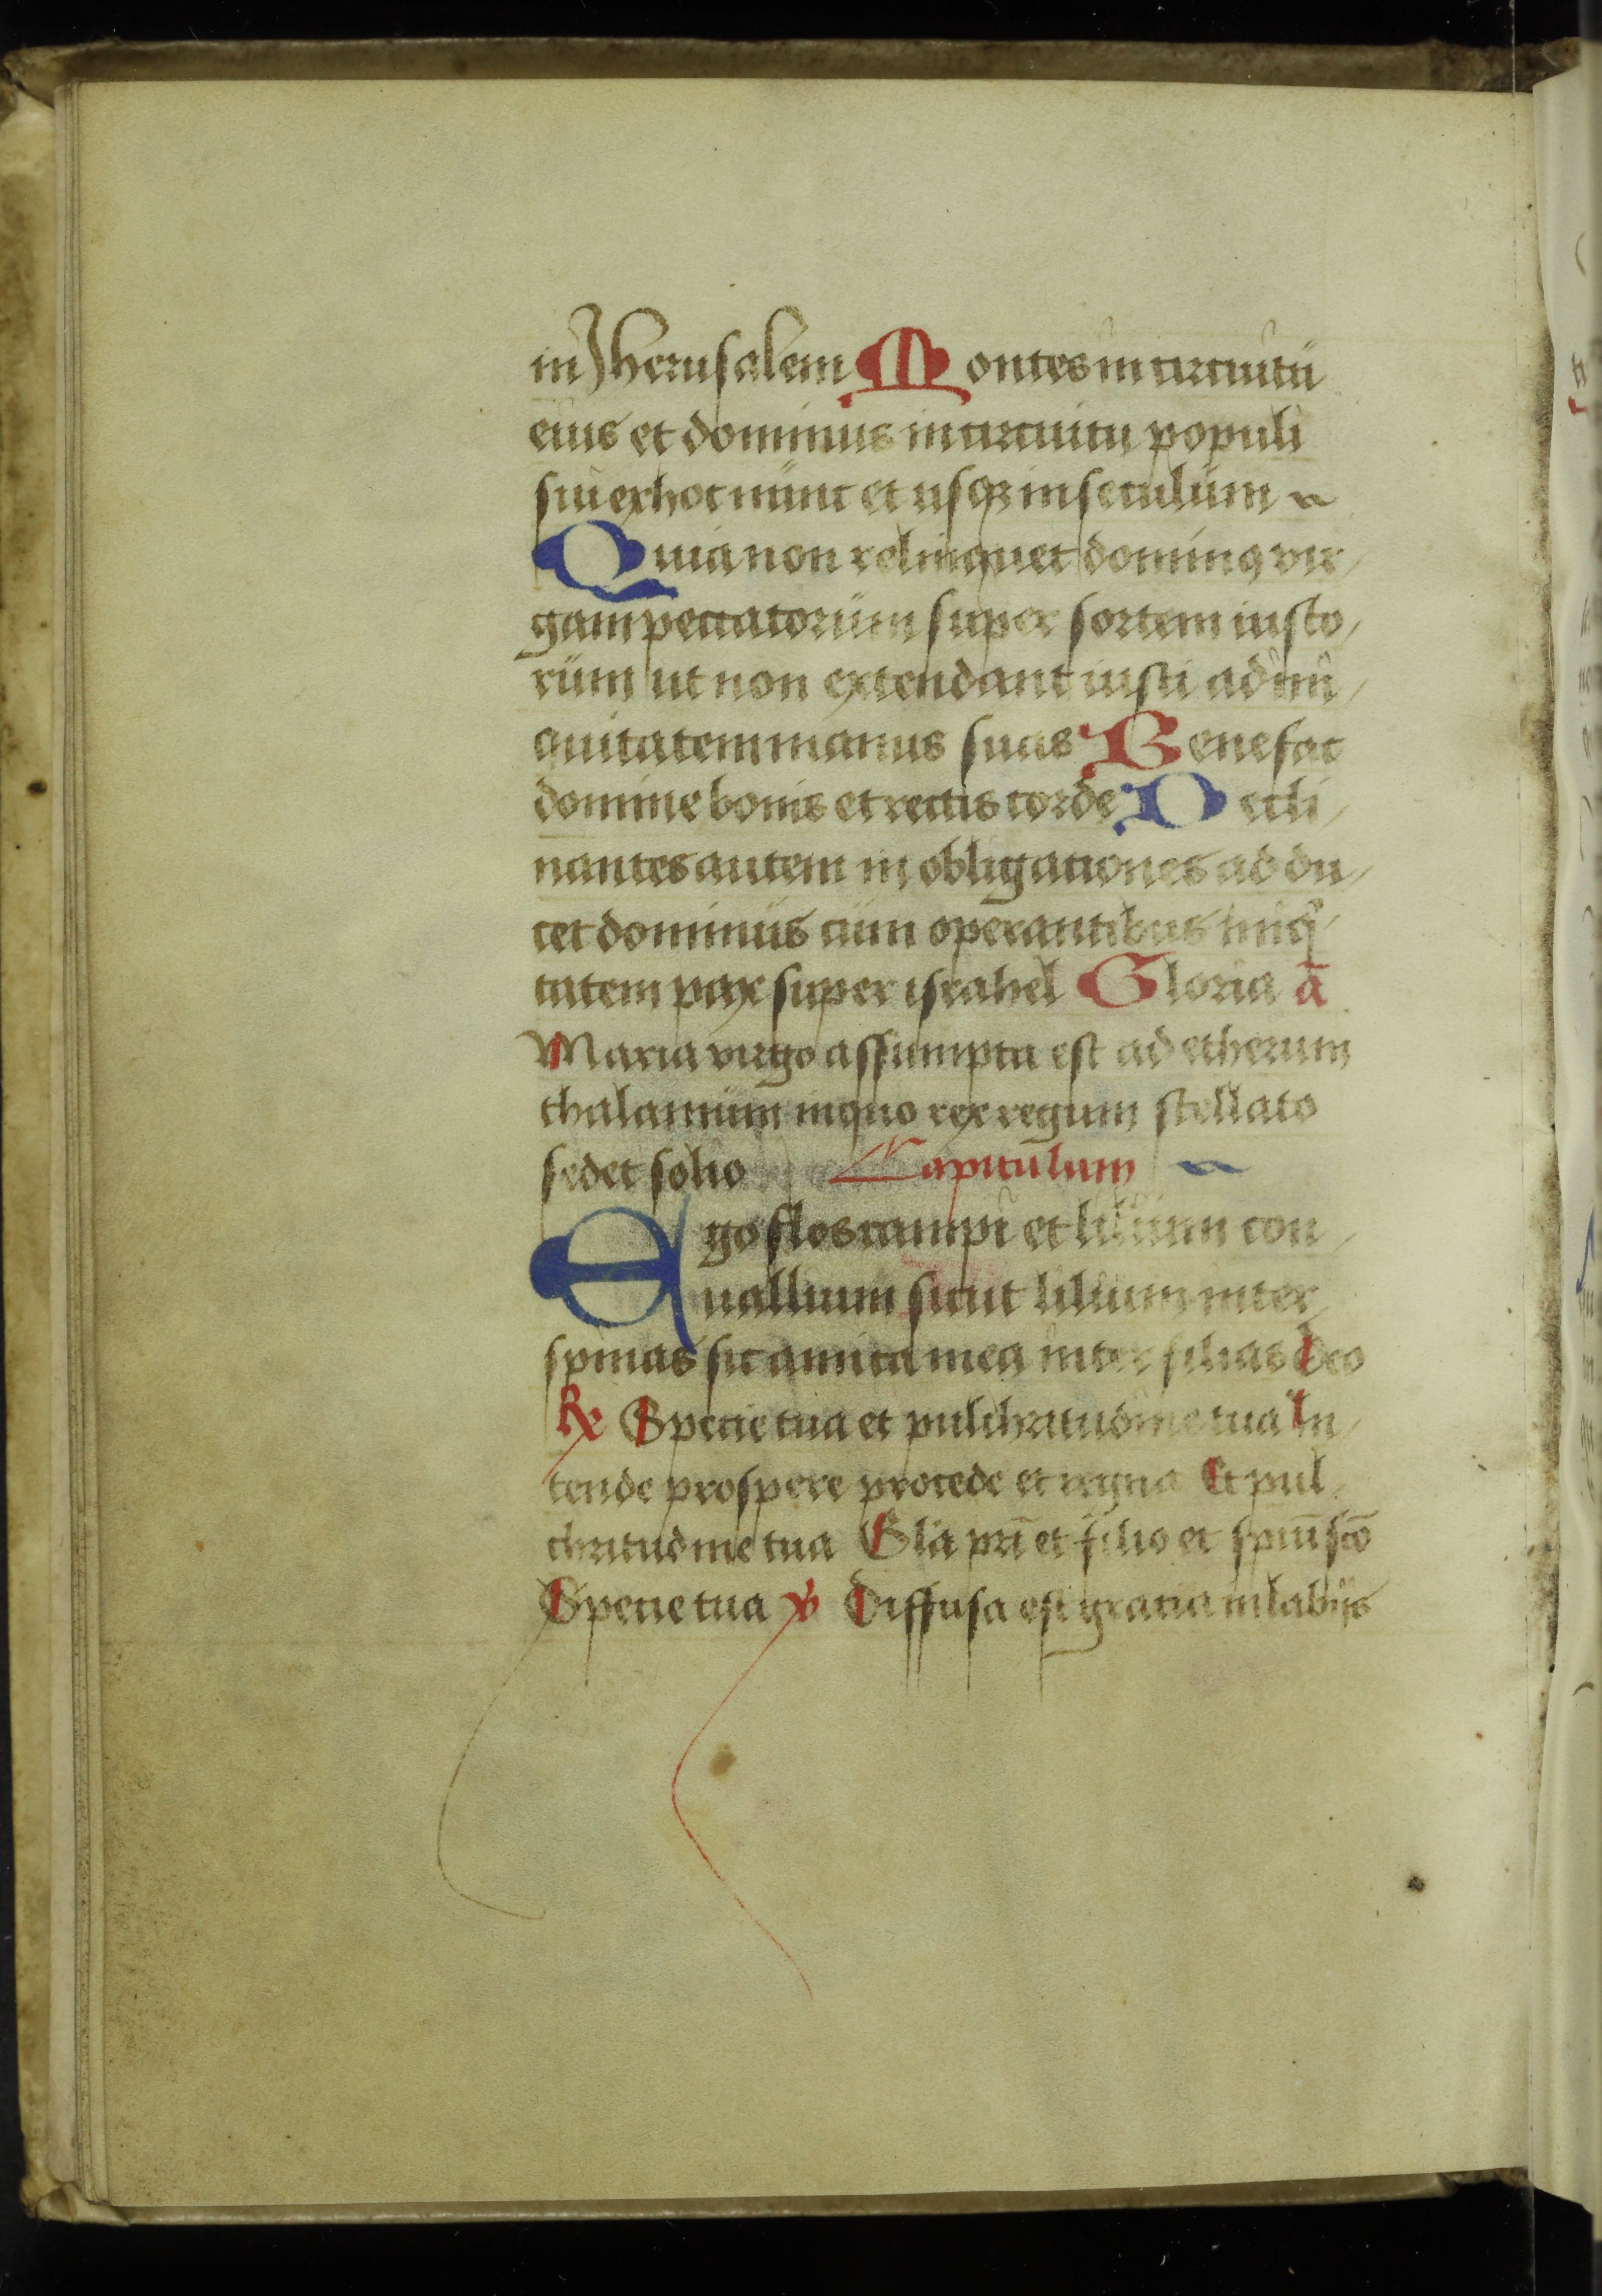 in Jherusalem Montes in circuitu
eius et dominus in circuitu populi
sui ex hoc nunc et usqꝫ in seculum
Quia non relinquet dominꝰ vir
gam peccatorum super sortem iusto
rum ut non extendant iusti ad ini
quitatem manus suas Benefac
domine bonis et rectis corde Decli
nantes autem in obligationes addu
cet dominus cum operantibus iniqͥ
tatem pax super israhel Gloria ā
Maria virgo assumpta est ad etherum
thalamum in quo rex regum stellato
sedet solio Capitulum
Ego flos campi et lilium con
uallium sicut lilium inter
spinas sic amica mea inter filias Deo
℟ Specie tua et pulchritudine tua In
tende prospere procede et regna Et pul
chritudine tua Gl̄a pr̄i et filio et spūi scō
Specie tua ℣ Diffusa est gratia in labijs